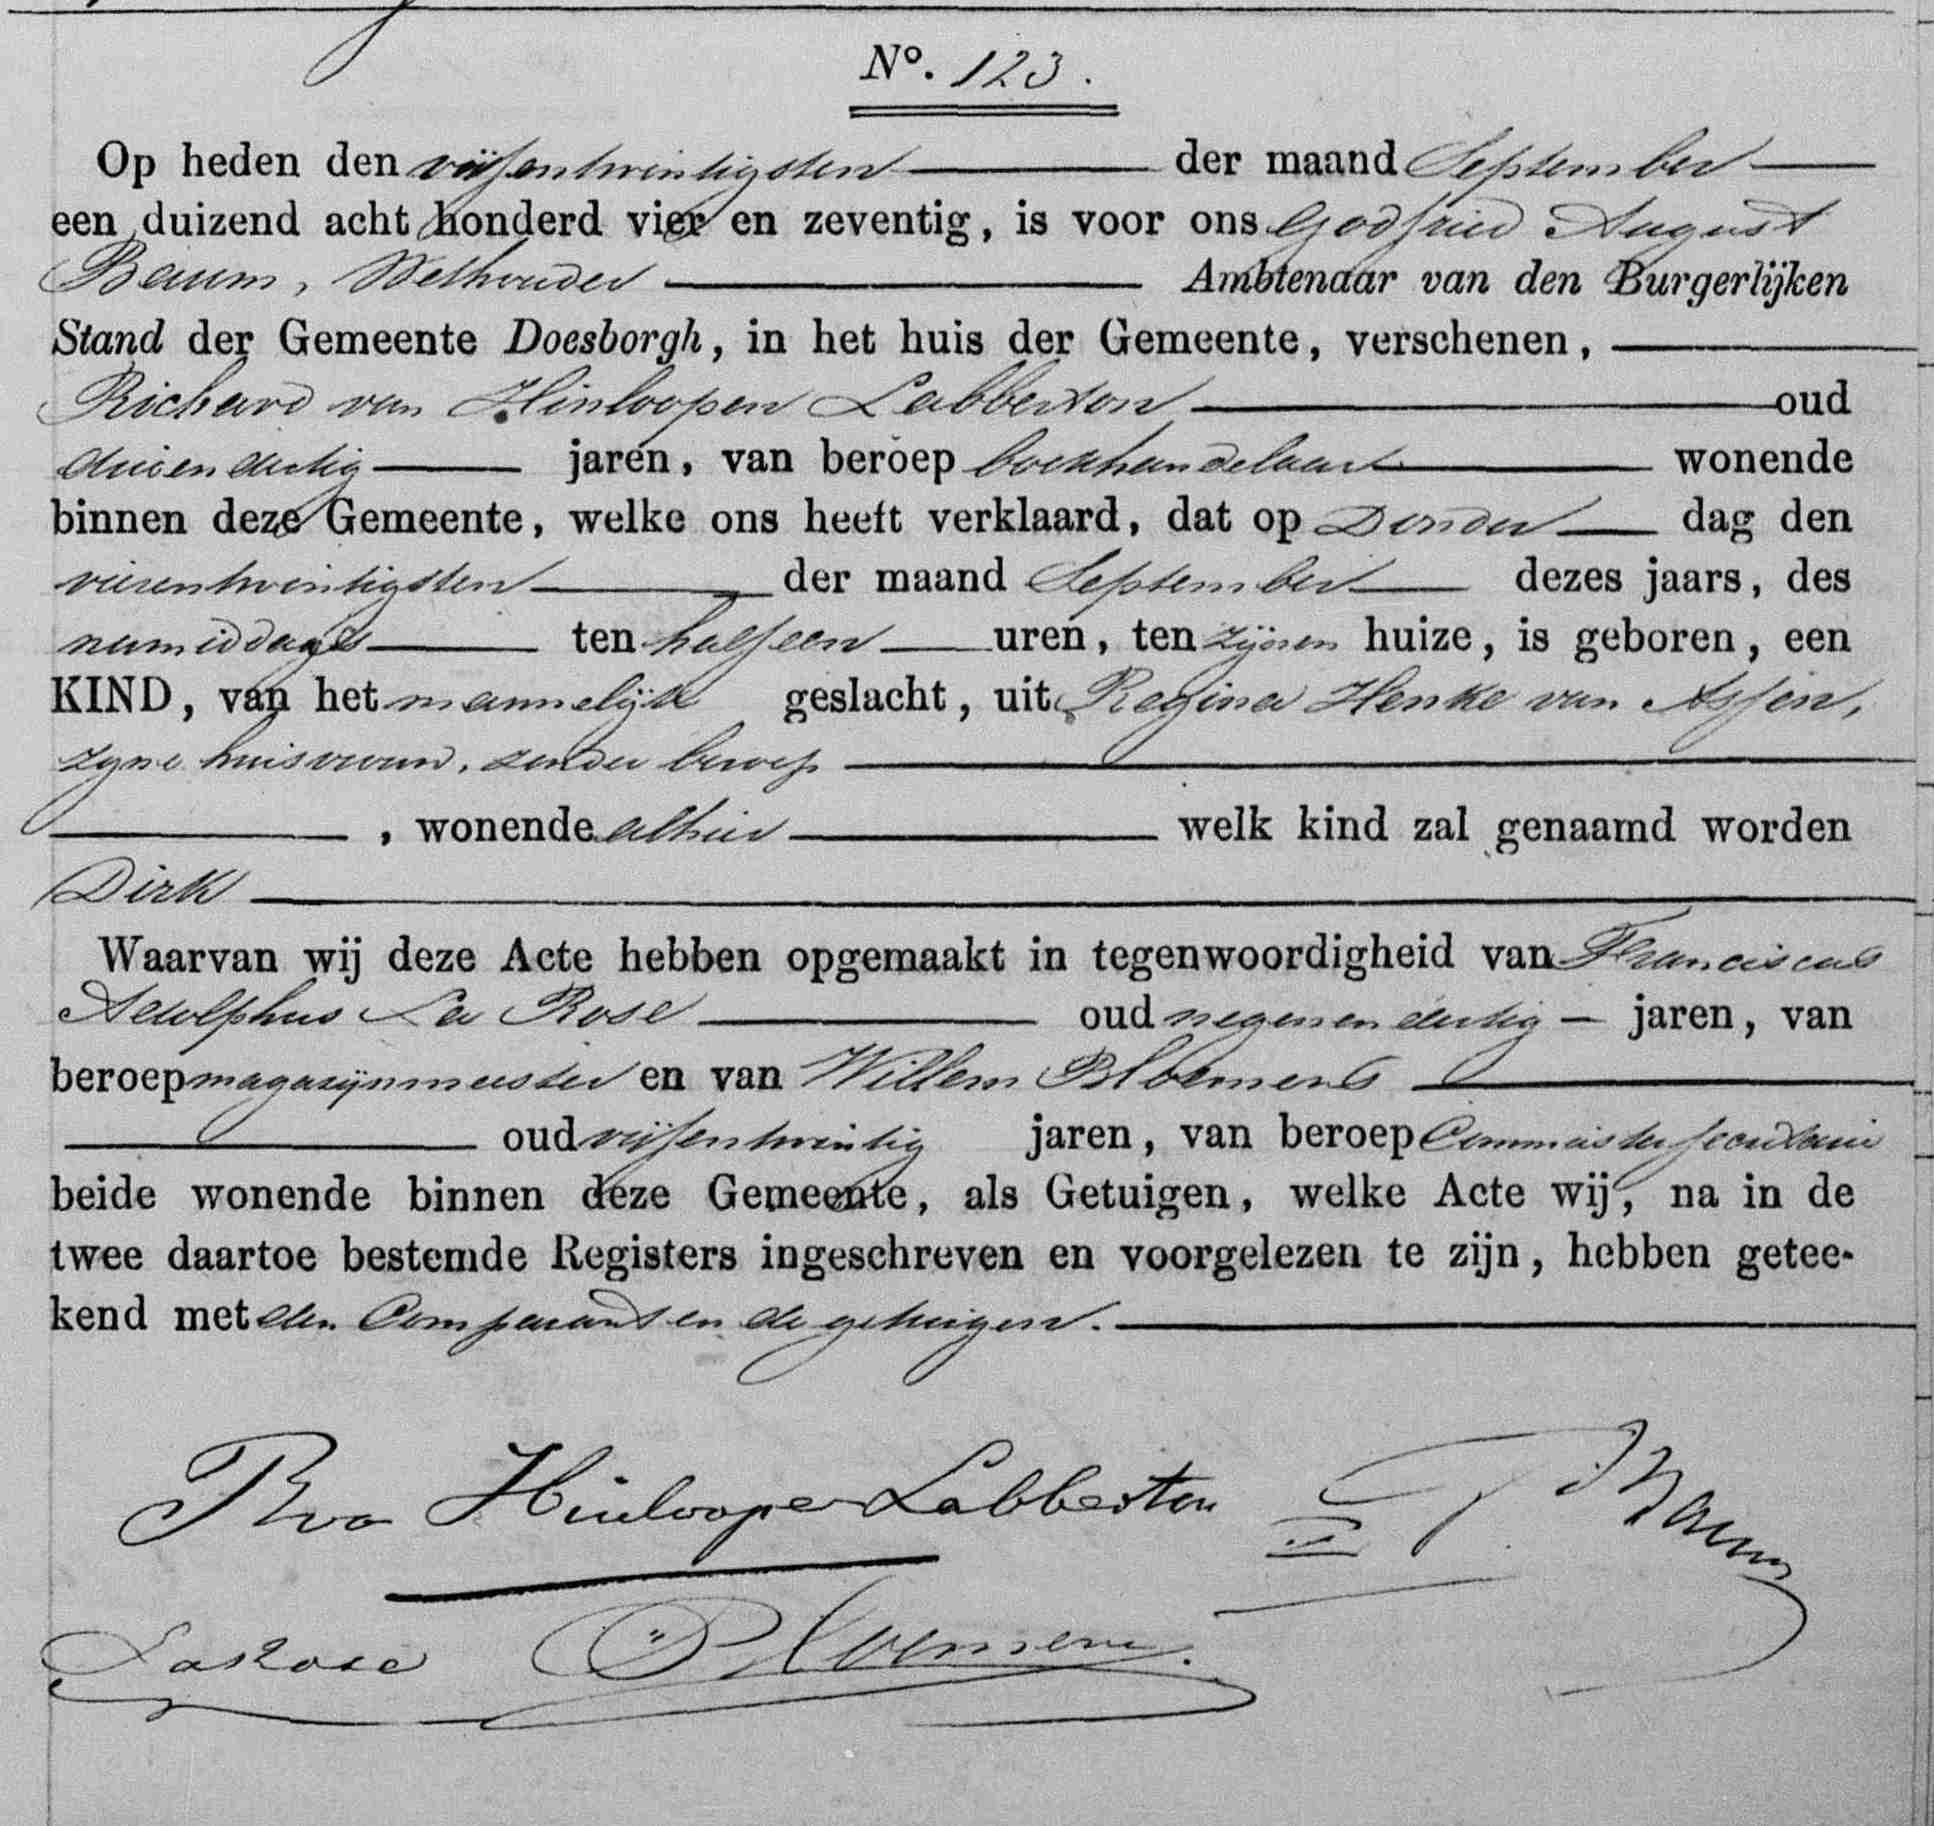 Nº. 123.
Op heden den vijfentwintigsten der maand September
een duizend acht honderd vier en zeventig, is voor ons Godfried August
Baum, Wethouder Ambtenaar van den Burgerlijken
Stand der Gemeente Doesborgh, in het huis der Gemeente, verschenen,
Richard van Hinloopen Labberton oud
drieendertig jaren, van beroep boekhandelaar wonende
binnen deze Gemeente, welke ons heeft verklaard, dat op Donder dag den
vierentwintigsten der maand September dezes jaars, des
namiddags ten half een uren, ten zijnen huize, is geboren, een
KIND, van het mannelijk geslacht, uit Regina Henke van Assen,
zyne huisvrouw, zonder beroep
, wonende alhier welk kind zal genaamd worden
Dirk
Waarvan wij deze Acte hebben opgemaakt in tegenwoordigheid van Franciscus
Adolphus La Rose oud negenendertig jaren, van
beroep magazijnmeester en van Willem Bloemens
oud vijfentwintig jaren, van beroep Commies ter secretarie
beide wonende binnen deze Gemeente, als Getuigen, welke Acte wij, na in de
twee daartoe bestemde Registers ingeschreven en voorgelezen te zijn, hebben getee-
kend met den Comparant en de getuigen.
R va Hinloopen Labberton Baum
La Rose Bloemens.